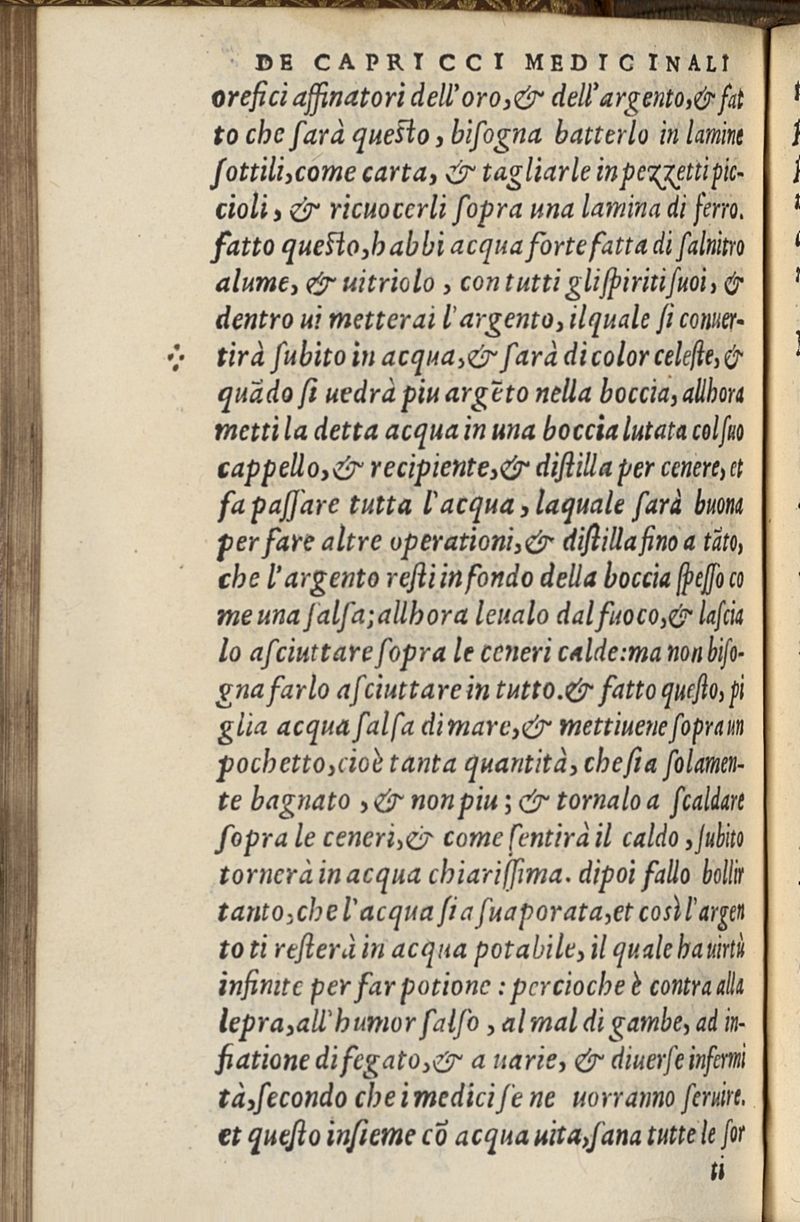 DE CAPRICCI MEDICINALI
orefici affinatori dell'oro,& dell'argento,& fat
to che ſarà queſto, biſogna batterlo in lamine
ſottili,come carta, & tagliarle in pezzetti pic-
cioli, & ricuocerli ſopra una lamina di ferro.
fatto queſto,habbi acqua forte fatta di ſalnitro
alume, & uitriolo, con tutti gli ſpiriti ſuoi, &
dentro ui metterai l'argento, ilquale ſi conuer-
tirà ſubito in acqua,& ſarà di color celeſte, &
quādo ſi uedrà piu argēto nella boccia, allhora
metti la detta acqua in una boccia lutata col ſuo
cappello,& recipiente,& diſtilla per cenere, et
fa paſſare tutta l'acqua, laquale ſarà buona
per fare altre operationi,& diſtilla fino a tāto,
che l'argento reſti in fondo della boccia ſpeſſo co
me una ſalſa; allhora leualo dal fuoco,& laſcia
lo aſciuttare ſopra le ceneri calde: ma non biſo-
gna farlo aſciuttare in tutto.& fatto queſto, pi
glia acqua ſalſa di mare,& mettiuene ſopra un
pochetto,cioè tanta quantità, che ſia ſolamen-
te bagnato, & non piu; & tornalo a ſcaldare
ſopra le ceneri,& come ſentirà il caldo, ſubito
tornerà in acqua chiariſſima. dipoi fallo bollir
tanto, che l'acqua ſia ſuaporata,et così l'argen
to ti reſterà in acqua potabile, il quale ha uirtù
infinite per far potione: percioche è contra alla
lepra,all'humor ſalſo, al mal di gambe, ad in-
fiatione di fegato,& a uarie, & diuerſe infermi
tà,ſecondo che i medici ſe ne uorranno ſeruire.
et queſto inſieme cō acqua uita,ſana tutte le ſor
ti